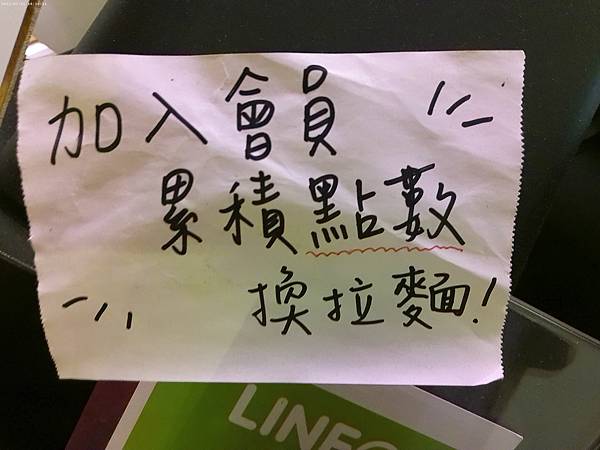 加入會員
累積點數
換拉麵!
LINE